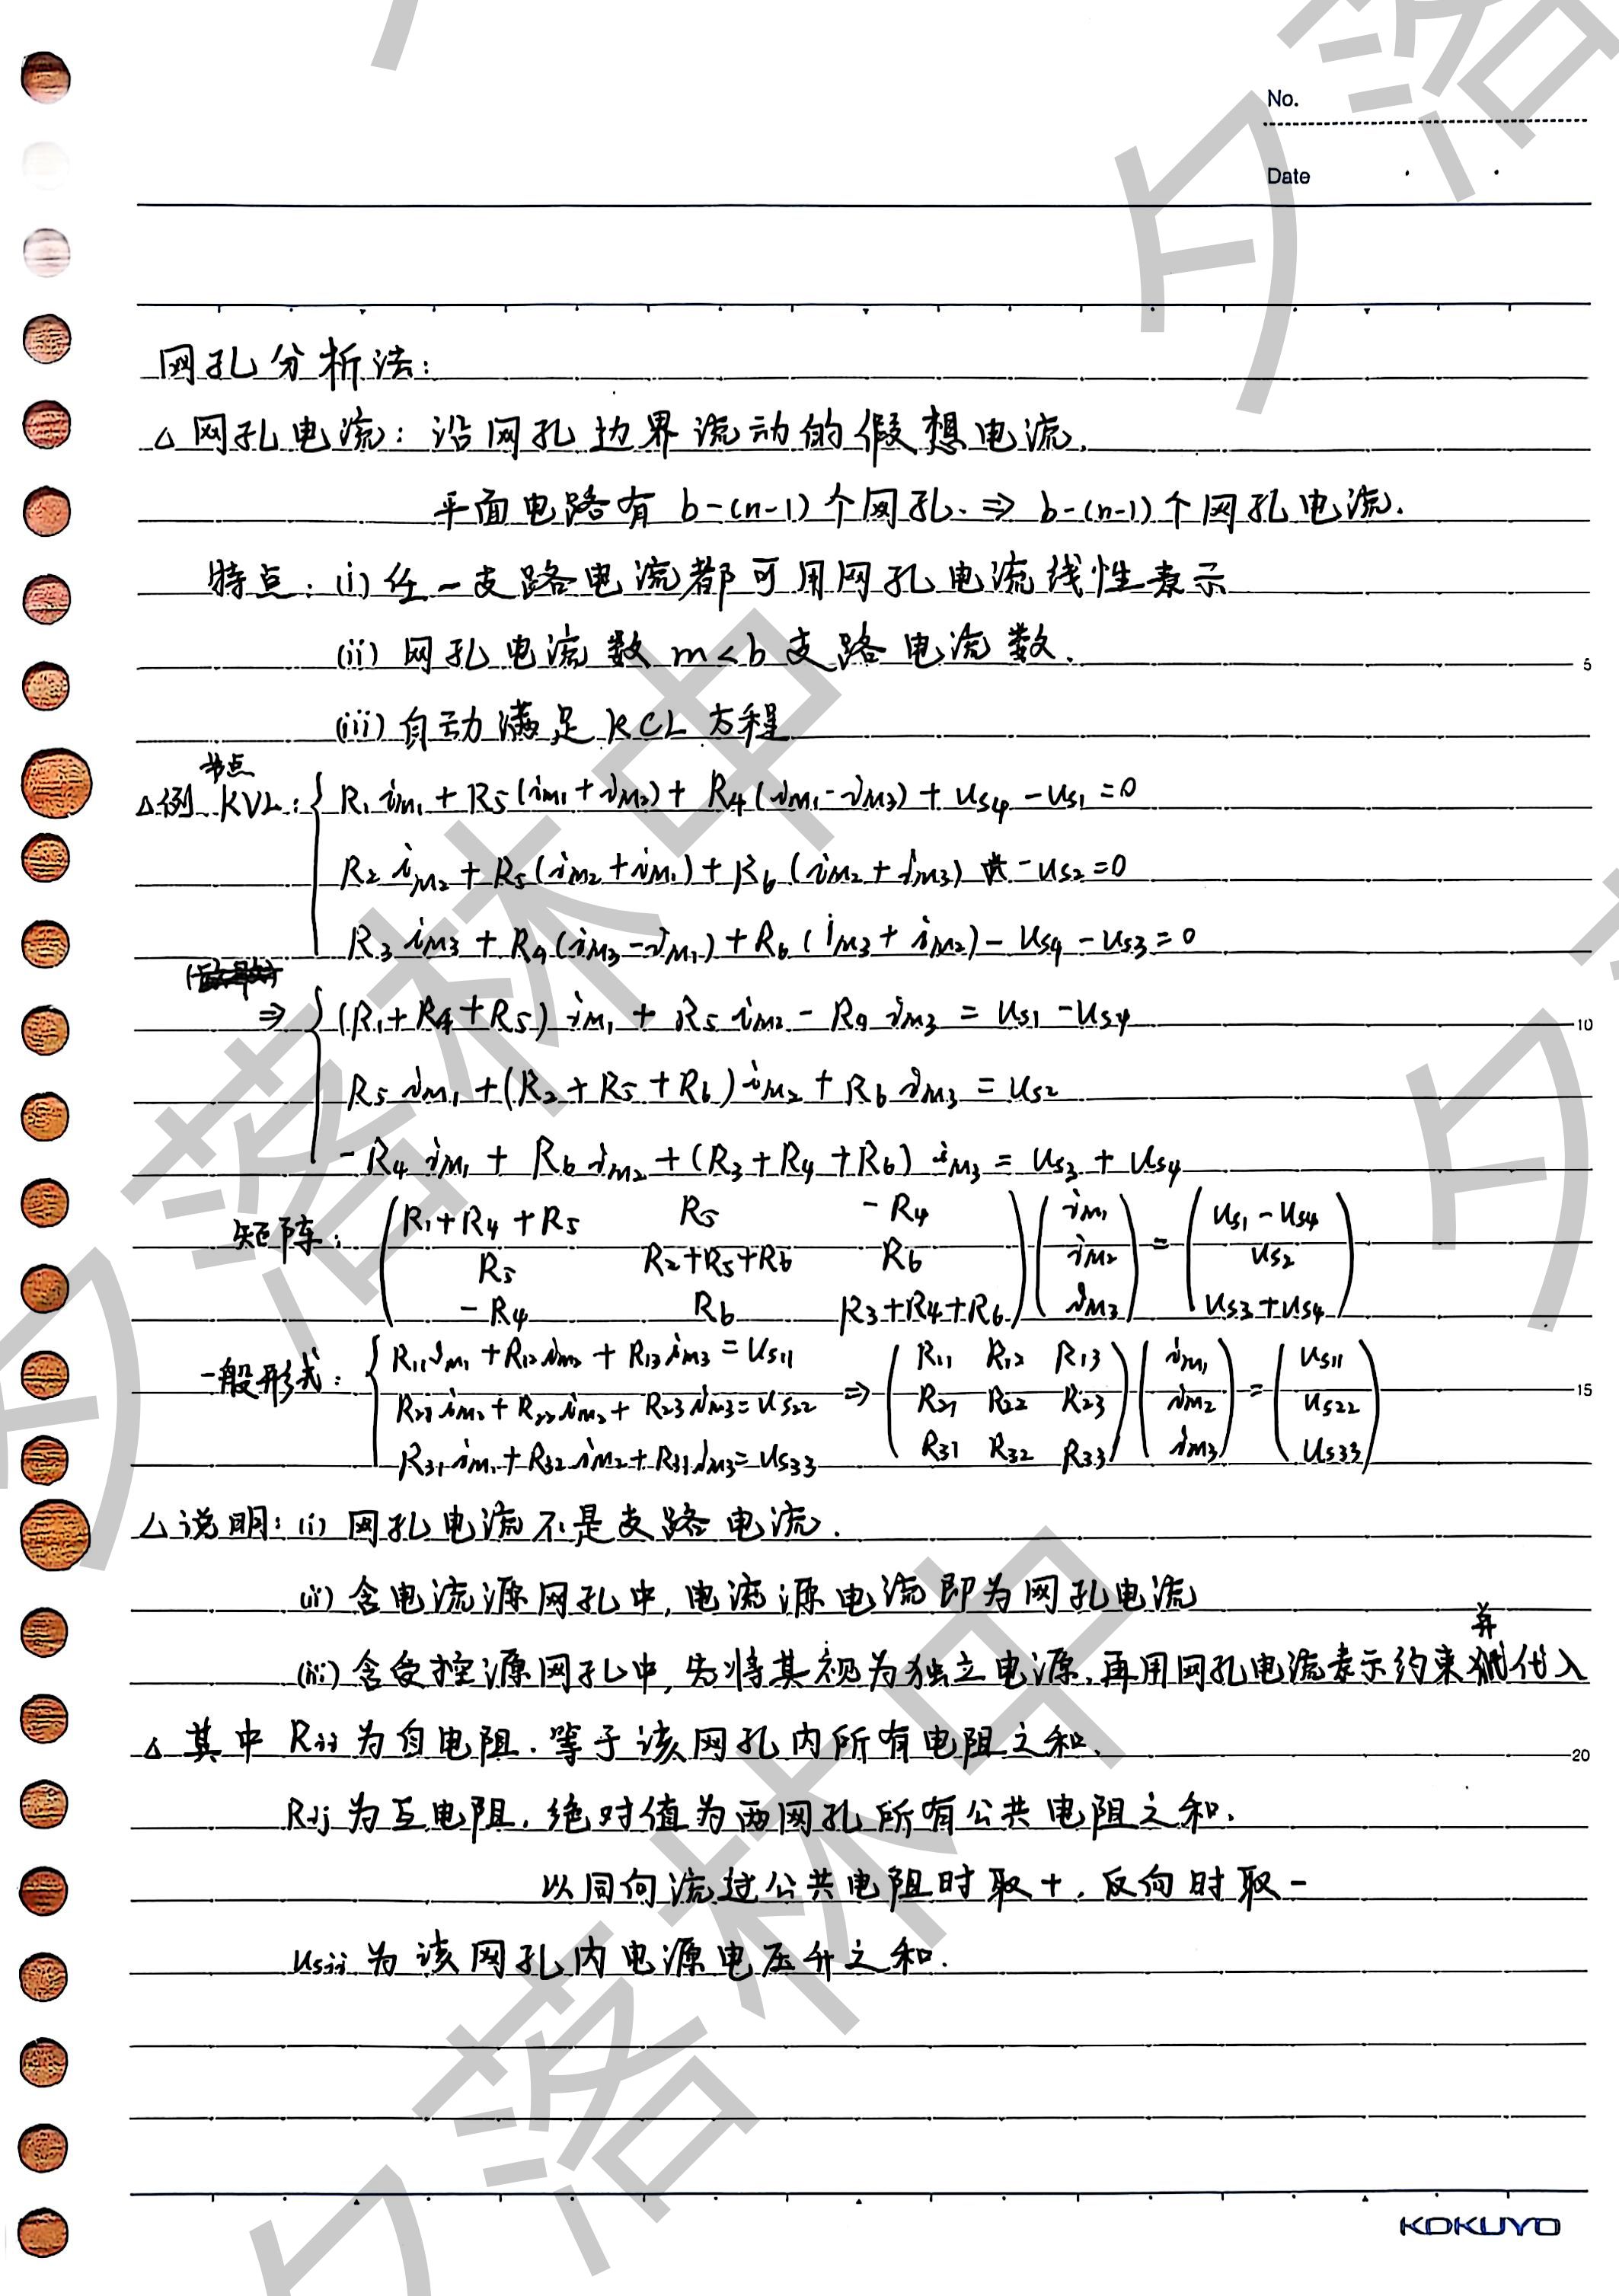 No.
Date
网孔分析法:
△ 网孔电流: 沿网孔边界流动的假想电流.
平面电路有 b-(n-1) 个网孔. ⇒ b-(n-1) 个网孔电流.
特点: (i) 任一支路电流都可用网孔电流线性表示
(ii) 网孔电流数 m<b 支路电流数.
(iii) 自动满足 KCL 方程
节点
△例 KVL: { R₁ iₘ₁ + R₅ (iₘ₁ + iₘ₂) + R₄ (iₘ₁ - iₘ₃) + uₛ₄ - uₛ₁ = 0
R₂ iₘ₂ + R₅ (iₘ₂ + iₘ₁) + R₆ (iₘ₂ + iₘ₃) - uₛ₂ = 0
R₃ iₘ₃ + R₄ (iₘ₃ - iₘ₁) + R₆ (iₘ₃ + iₘ₂) - uₛ₄ - uₛ₃ = 0
⇒ { (R₁ + R₄ + R₅) iₘ₁ + R₅ iₘ₂ - R₄ iₘ₃ = uₛ₁ - uₛ₄
R₅ iₘ₁ + (R₂ + R₅ + R₆) iₘ₂ + R₆ iₘ₃ = uₛ₂
- R₄ iₘ₁ + R₆ iₘ₂ + (R₃ + R₄ + R₆) iₘ₃ = uₛ₃ + uₛ₄
矩阵: ( R₁ + R₄ + R₅ R₅ - R₄ ) ( iₘ₁ ) = ( uₛ₁ - uₛ₄ )
( R₅ R₂ + R₅ + R₆ R₆ ) ( iₘ₂ ) ( uₛ₂ )
( - R₄ R₆ R₃ + R₄ + R₆ ) ( iₘ₃ ) ( uₛ₃ + uₛ₄ )
一般形式: { R₁₁ iₘ₁ + R₁₂ iₘ₂ + R₁₃ iₘ₃ = uₛ₁₁ ⇒ ( R₁₁ R₁₂ R₁₃ ) ( iₘ₁ ) = ( uₛ₁₁ )
R₂₁ iₘ₂ + R₂₂ iₘ₂ + R₂₃ iₘ₃ = uₛ₂₂ ( R₂₁ R₂₂ R₂₃ ) ( iₘ₂ ) ( uₛ₂₂ )
R₃₁ iₘ₁ + R₃₂ iₘ₂ + R₃₁ iₘ₃ = uₛ₃₃ ( R₃₁ R₃₂ R₃₃ ) ( iₘ₃ ) ( uₛ₃₃ )
△ 说明: (i) 网孔电流不是支路电流.
(ii) 含电流源网孔中, 电流源电流即为网孔电流
(iii) 含受控源网孔中, 先将其视为独立电源, 再用网孔电流表示约束并代入
△ 其中 Rii 为自电阻. 等于该网孔内所有电阻之和.
Rij 为互电阻. 绝对值为两网孔所有公共电阻之和.
以同向流过公共电阻时取 +, 反向时取 -
usii 为该网孔内电源电压升之和.
5
10
15
20
KOKUYO
夕落林中